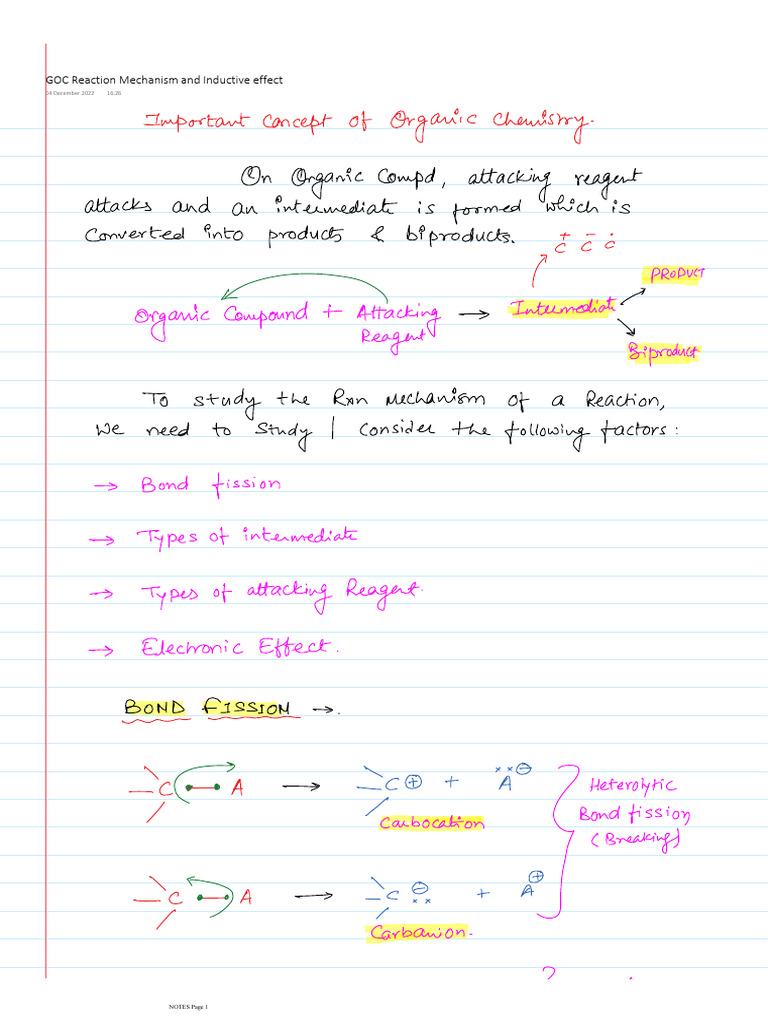 GOC Reaction Mechanism and Inductive effect
04 December 2022 16:26
Important Concept of Organic Chemistry.
On Organic Compd, attacking reagent
attacks and an intermediate is formed which is
Converted into products & biproducts.
C+ C- C•
PRODUCT
Organic Compound + Attacking Reagent → Intermediate
Biproduct
To study the Rxn Mechanism of a Reaction,
We need to Study / Consider the following factors:
→ Bond fission
→ Types of intermediate
→ Types of attacking Reagent.
→ Electronic Effect.
BOND FISSION →.
C A → C⊕ + A ××⊖
Carbocation
Heterolytic
Bond fission
(Breaking)
C A → C⊖ ×× + A⊕
Carbanion.
NOTES Page 1